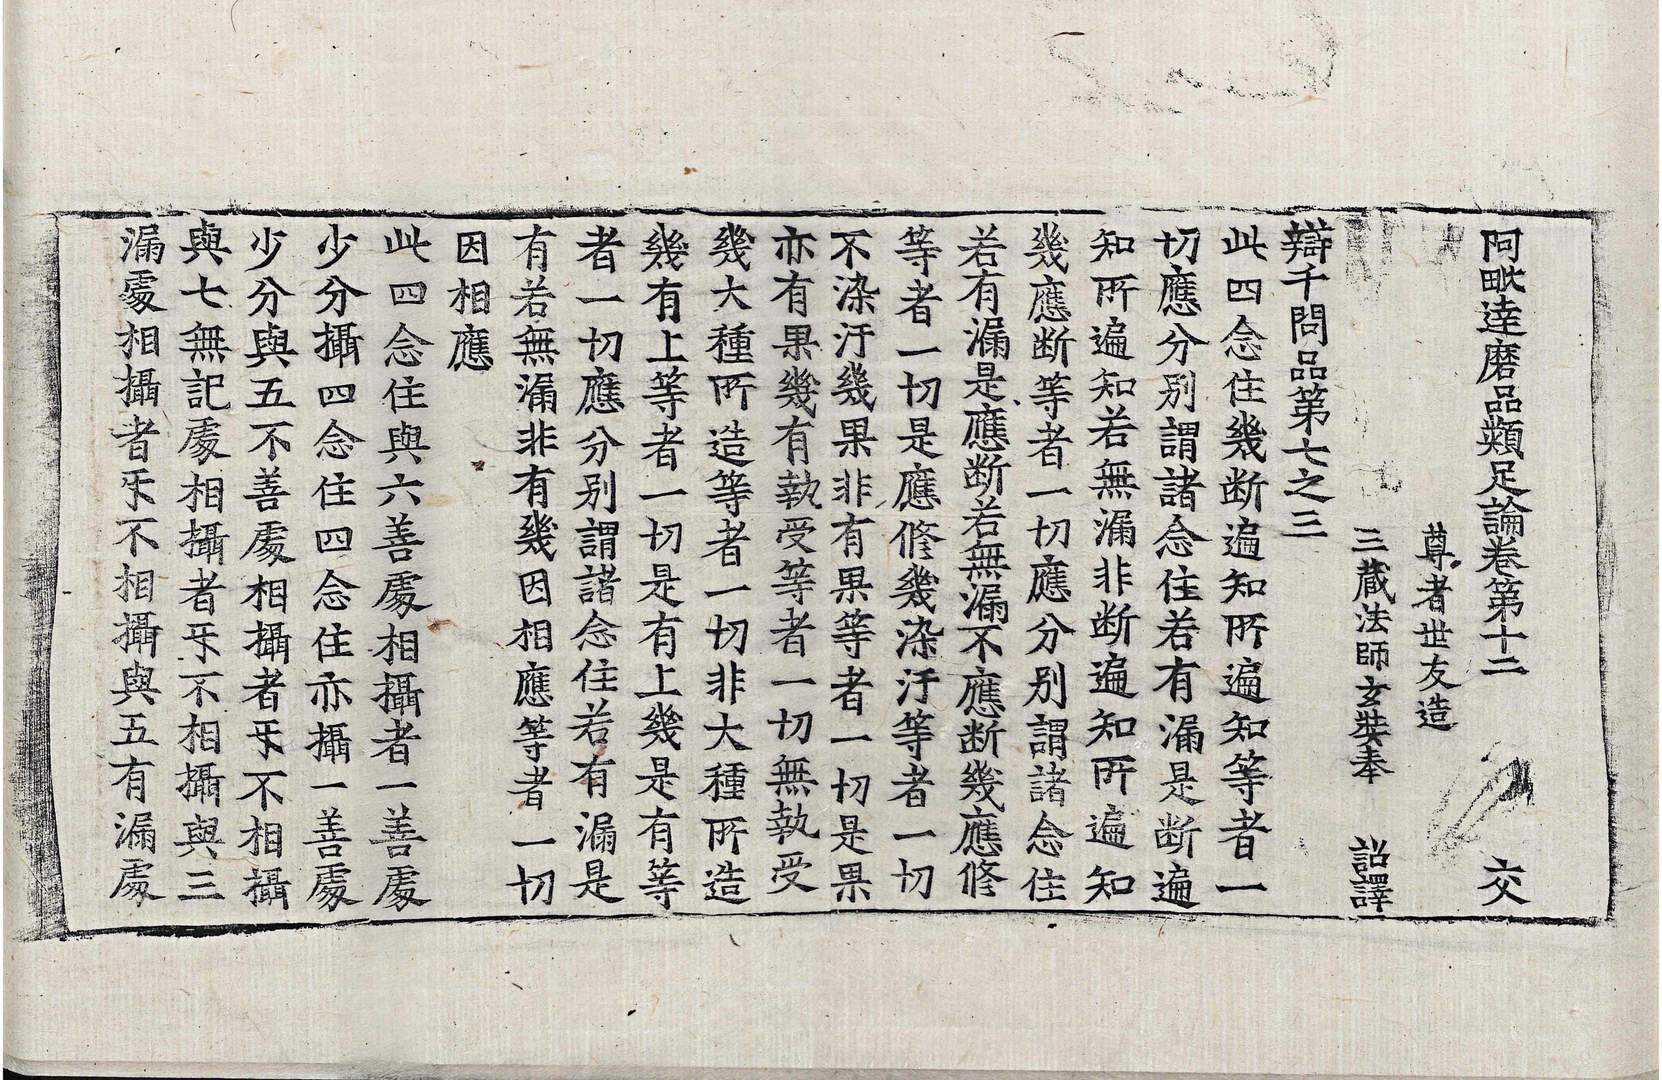 阿毗達磨品類足論卷第十二 交
尊者世友造
三藏法師玄奘奉 詔譯
辯千問品第七之三
此四念住幾断遍知所遍知等者一
切應分別謂諸念住若有漏是断遍
知所遍知若無漏非断遍知所遍知
幾應断等者一切應分別謂諸念住
若有漏是應断若無漏不應断幾應修
等者一切是應修幾染汙等者一切
不染汙幾果非有果等者一切是果
亦有果幾有執受等者一切無執受
幾大種所造等者一切非大種所造
幾有上等者一切是有上幾是有等
者一切應分別謂諸念住若有漏是
有若無漏非有幾因相應等者一切
因相應
此四念住與六善處相攝者一善處
少分攝四念住四念住亦攝一善處
少分與五不善處相攝者㸦不相攝
與七無記處相攝者㸦不相攝與三
漏處相攝者㸦不相攝與五有漏處